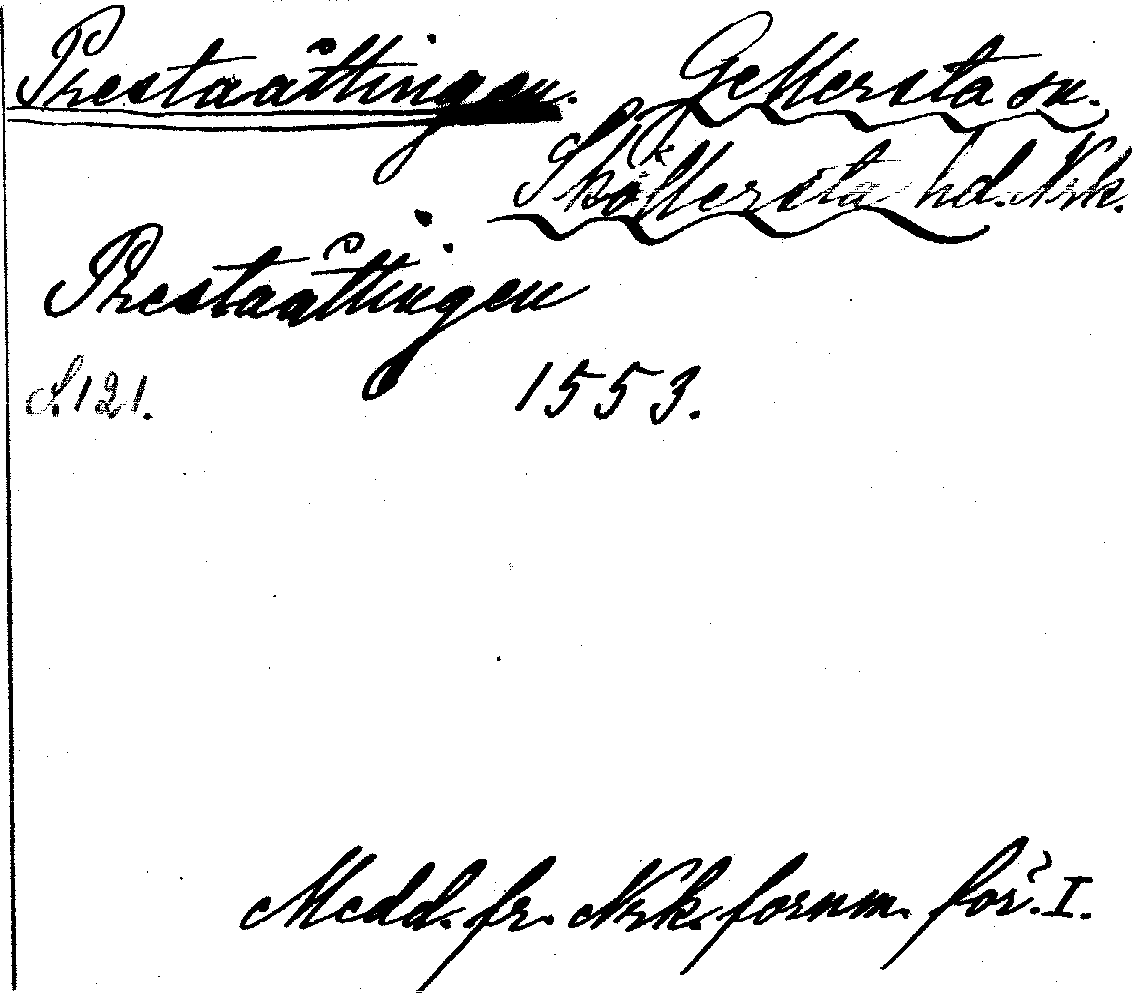 Prestaåttingen. Gellersta sn.
Sköllersta hd. Nrk.
Prestaåttingen
S. 121. 1553.
Medd. fr. Nrk. fornm. för. I.